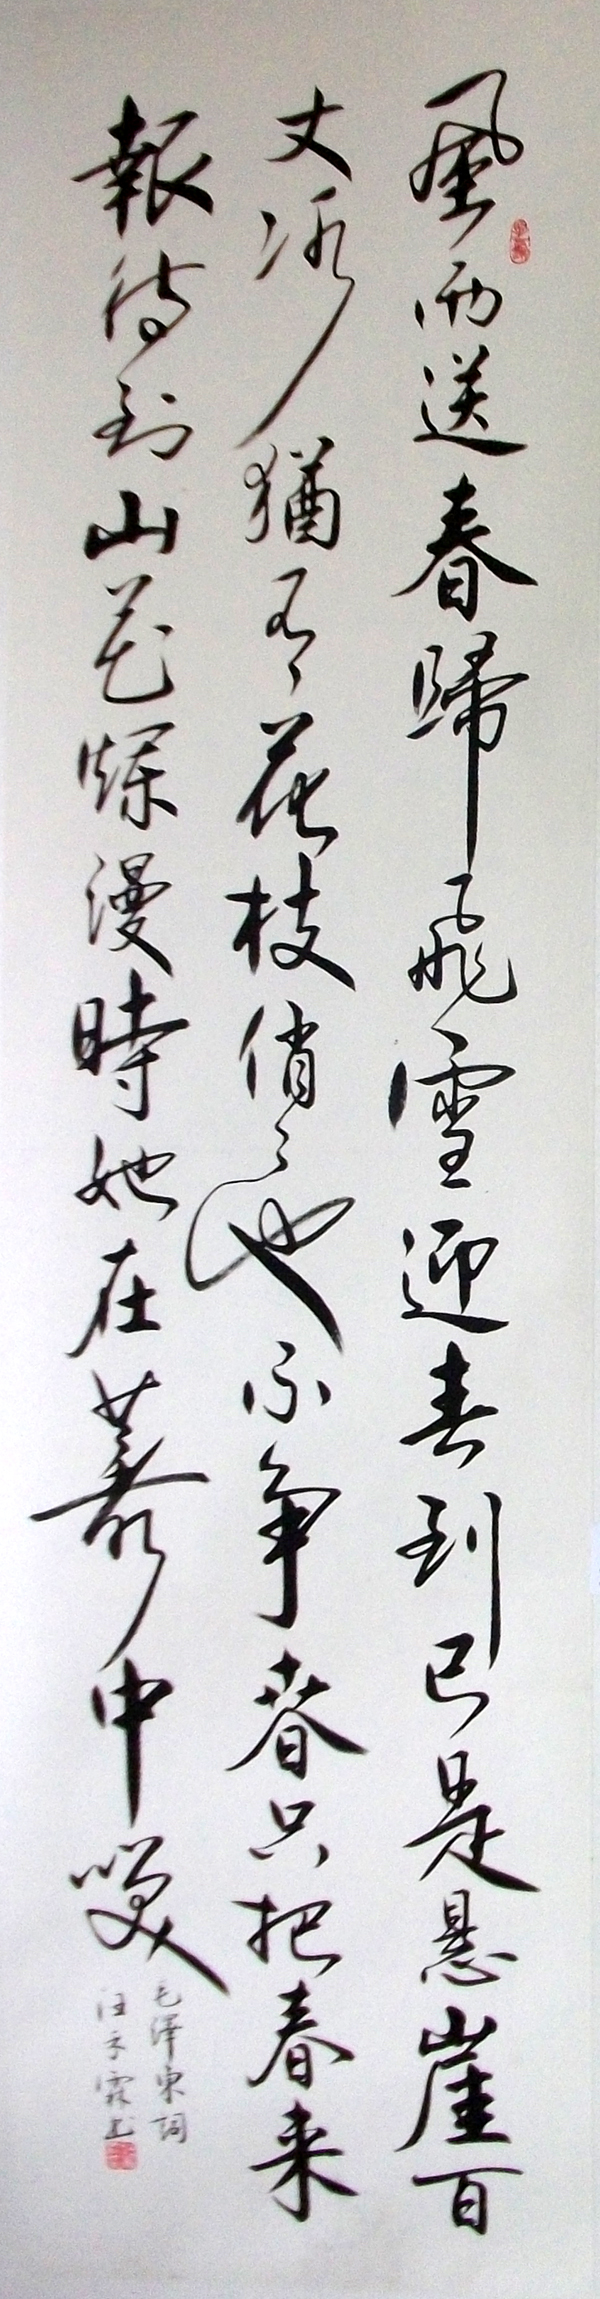 風雨送春歸飛雪迎春到已是悬崖百
丈冰猶有花枝俏々也不争春只把春来
報待到山花爛漫時她在藂中咲
毛澤東詞